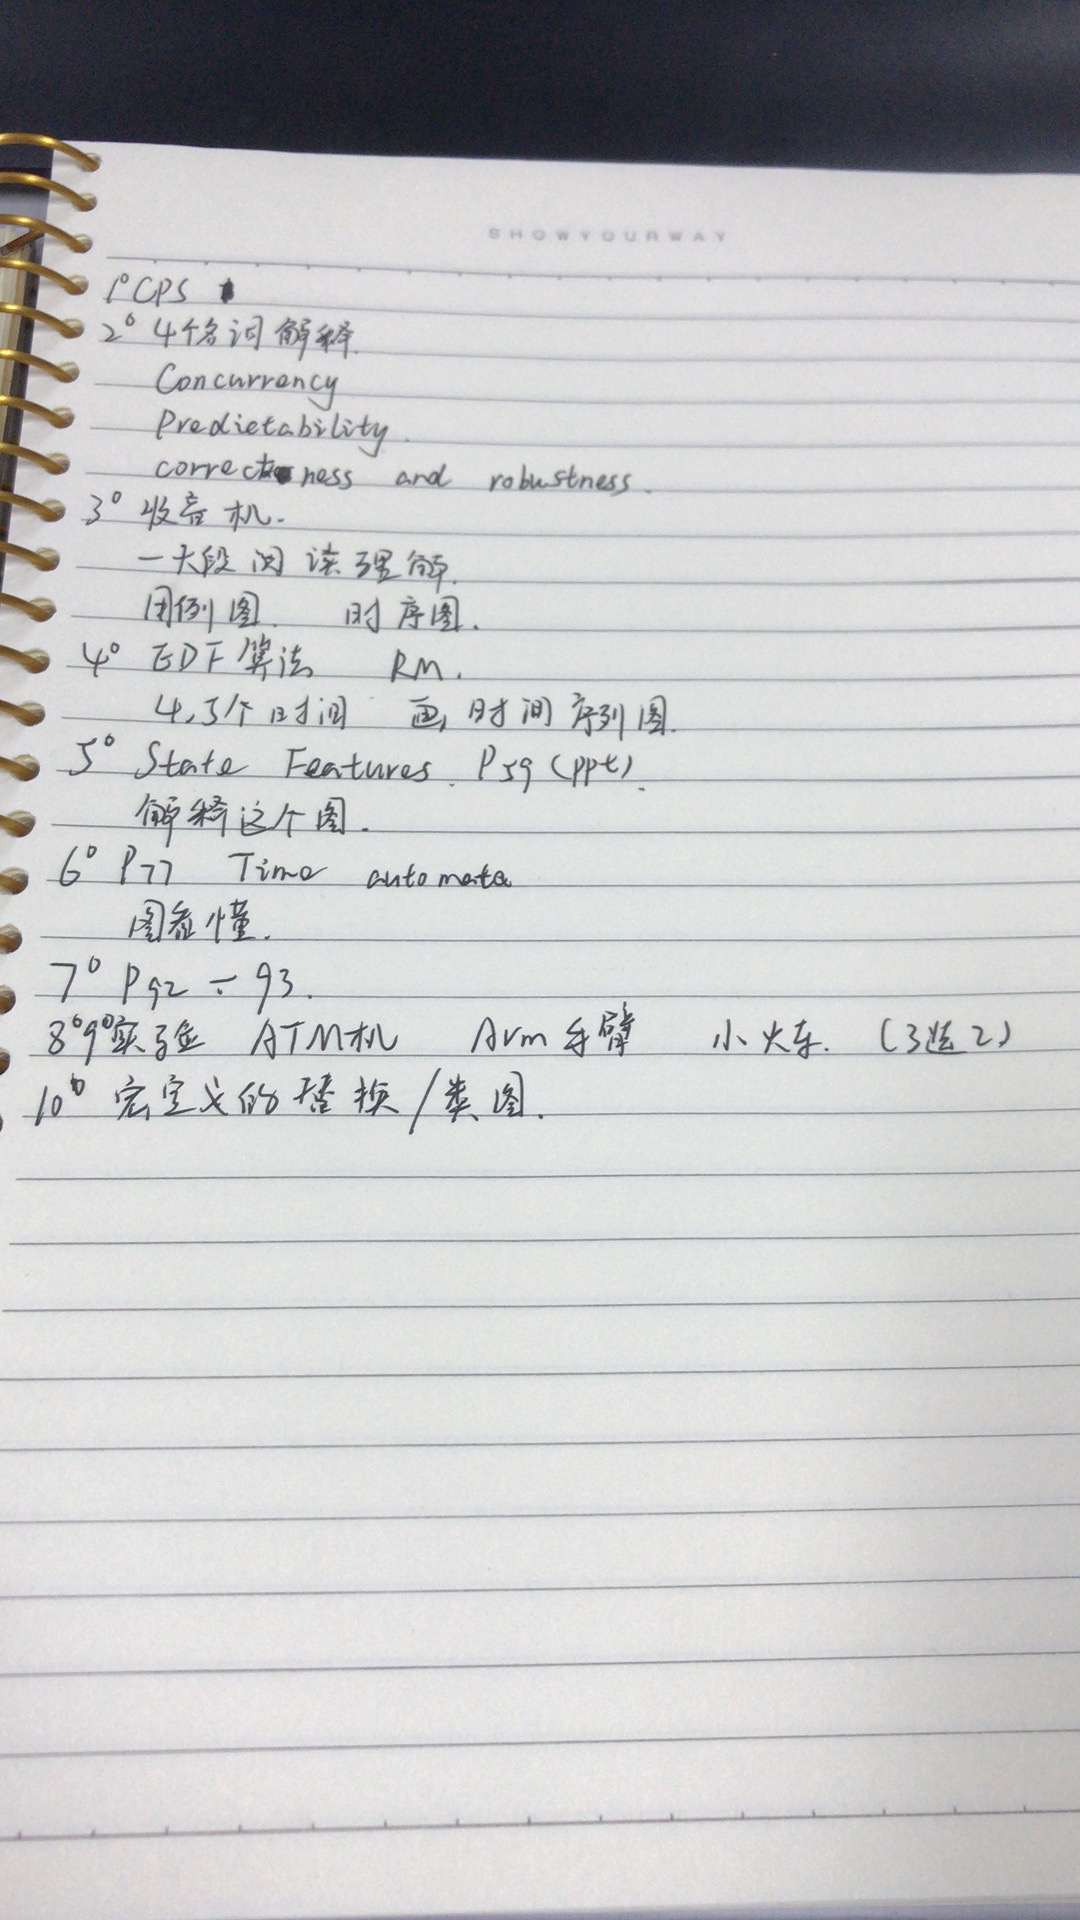 SHOWYOURWAY
1° CPS
2° 4个名词解释
Concurrency
Predictability.
correctness and robustness.
3° 收音机.
一大段阅读理解.
用例图. 时序图.
4° EDF算法 RM.
4,5个时间 画时间序列图.
5° State Features. P59 (ppt).
解释这个图.
6° P77 Time automata
图看懂.
7° P92 - 93.
8°9°实验 ATM机 Arm手臂 小火车. (3选2)
10° 宏定义的替换/类图.